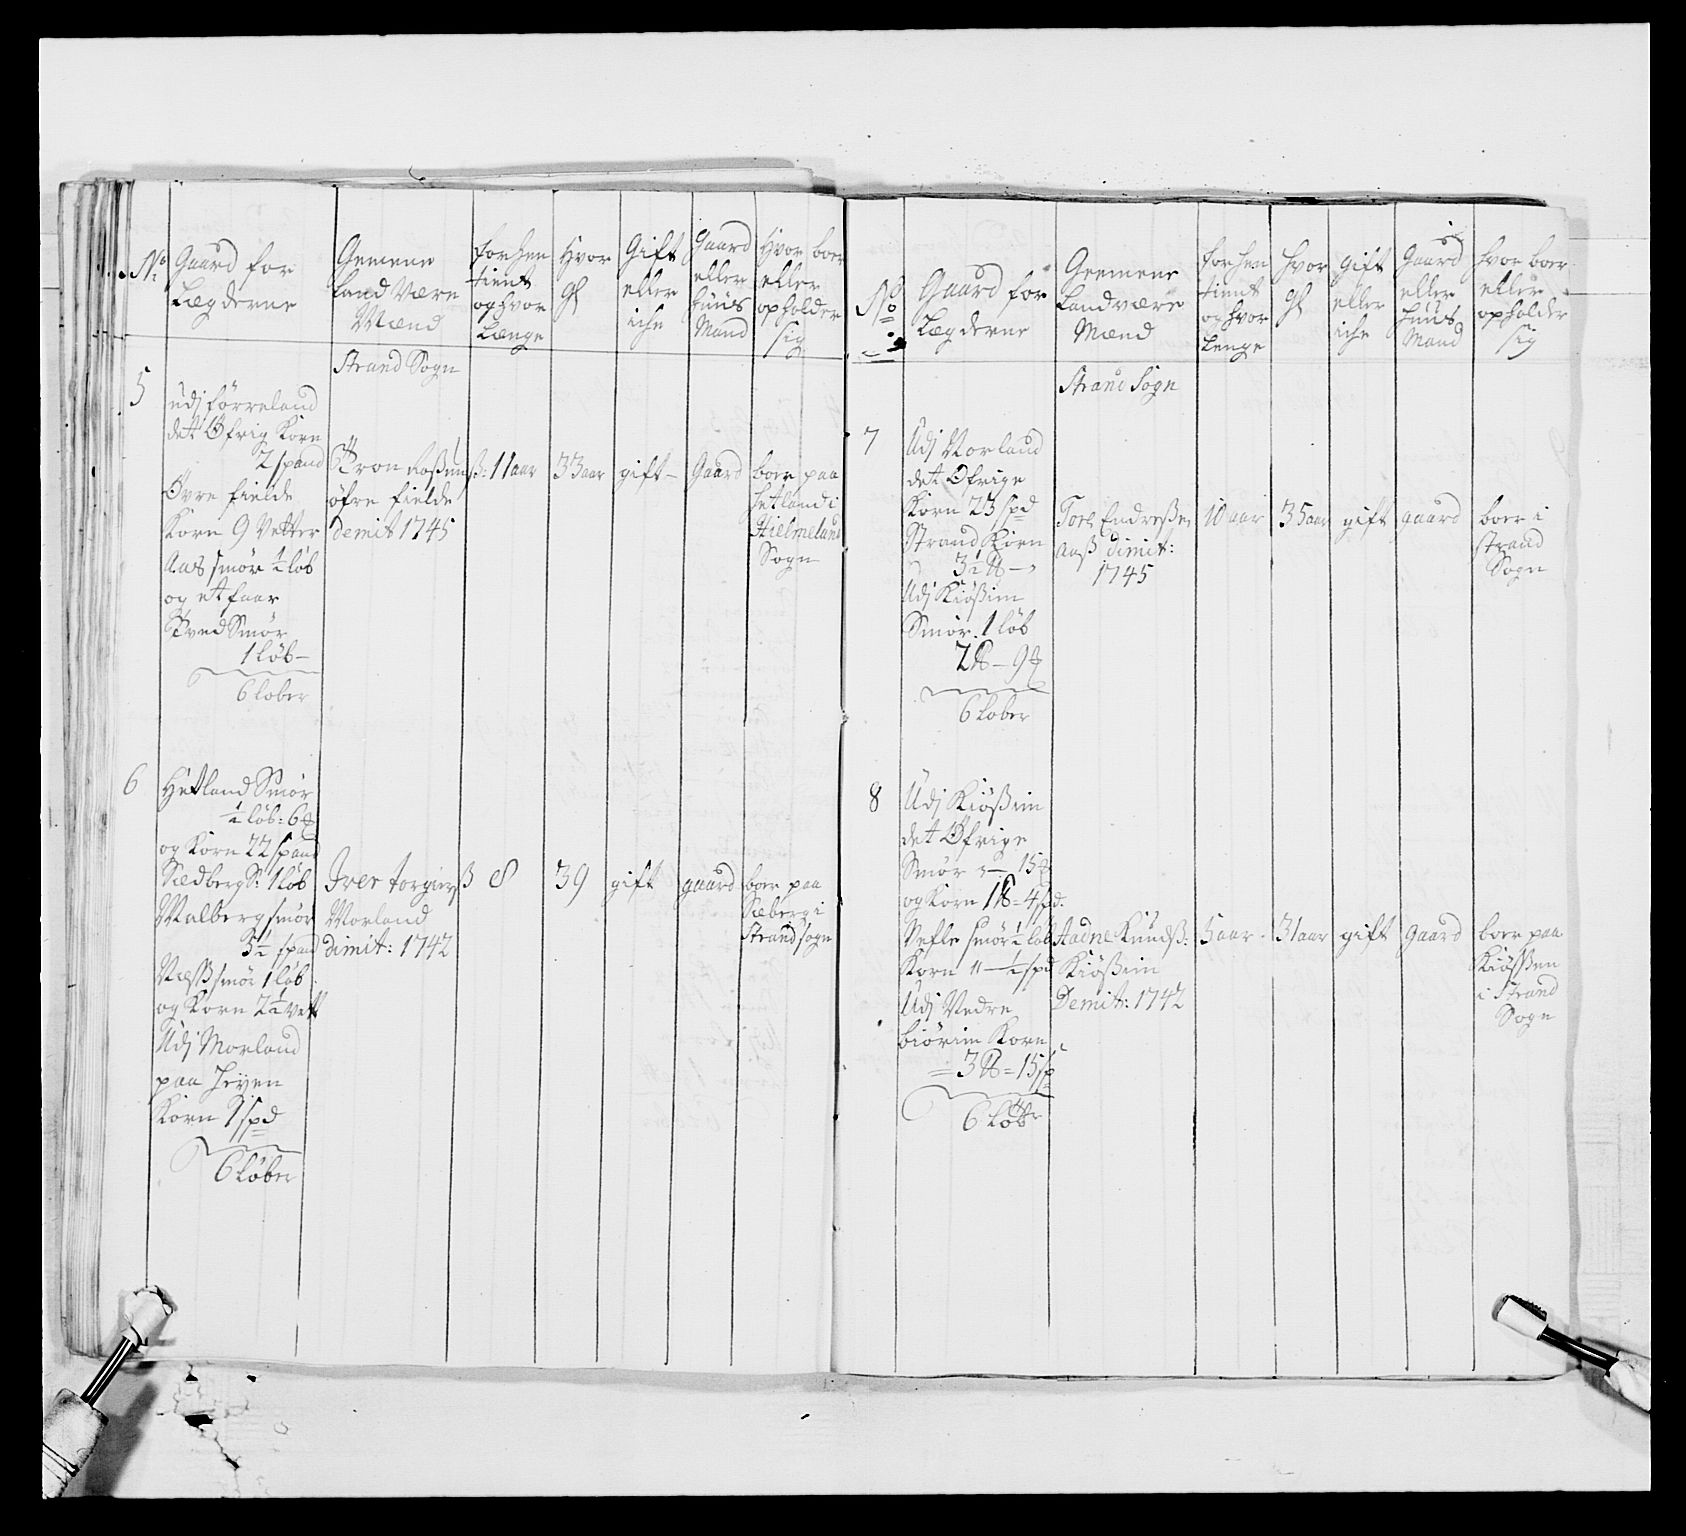 No
Gaard for
Lægderne
Gemene
Land Være
Mænd
forhen
tient
og hvor
Længe
Hvor
gl
Gift
eller
iche
Gaard
eller
huus
Mand
Hvor boer
eller
opholder
sig
Strand Sogn
5
udj förreland
det Øfrig Korn
2 spand
Øvre fielde
Korn 9 Vetter
Aas smør ½ löb
og et faar
Tved Smör
1 løb —
6 lober
öfre fielde
Demit 1745
11 aar
33 aar
gift —
Gaard
boer paa
hetland i
Hielmeland
Sogn
6
Hetland Smör
½ löb: 6
og Korn 22 spand
Sædberg S: 1 löb
Malberg smör
5½ spand
Næsß smör 1 löb
og Korn 2½ vett
Udj Morland
paa
Korn 1 spd
6 løber
Iver torgierß
Morland
dimit: 1742
8
39
gift
gaard
boer paa
Sæberg i
Strand sogn
No
Gaard for
Lægderne
Geemene
Landvære
Mænd
forhen
tient
og hvor
Lenge
hvor
gl
gift
eller
iche
Gaard
eller
huus
Mand
hvor boer
eller
opholder
sig
Strand Sogn
7
Udj Norland
det Øfrige
Korn 23 spd
Strand Korn
3½
Udj Kiößeim
Smör. 1 löb
2 — 9
6 lober
Endreßen
Aaß dimit:
1745
10 aar
35 aar
gift
gaard
boer i
strand
Sogn
8
Udj Kiößeim
det Øfrige
Smör — 15
og Korn 1 = 4 spd.
Nefle smör ½ lob
Korn " — ½ spd
Udj Nedre
biörim Korn
= 3 = 15 sp
6
Aadne Knudß:
Kiößeim
Demit: 1742
5 aar
31 aar
gift
gaard
boer paa
Kiößen
i Strand
Sogn